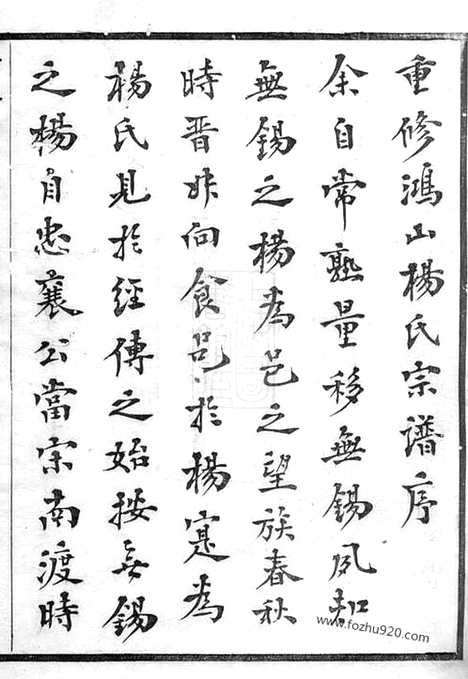 重修鴻山楊氏宗譜序
余自常熟量移無錫夙知
無錫之楊為邑之望族春秋
時晉叔向食邑於楊寔為
楊氏見於經傳之始按無錫
之楊自忠襄公當宋南渡時
www.fozhu920.com